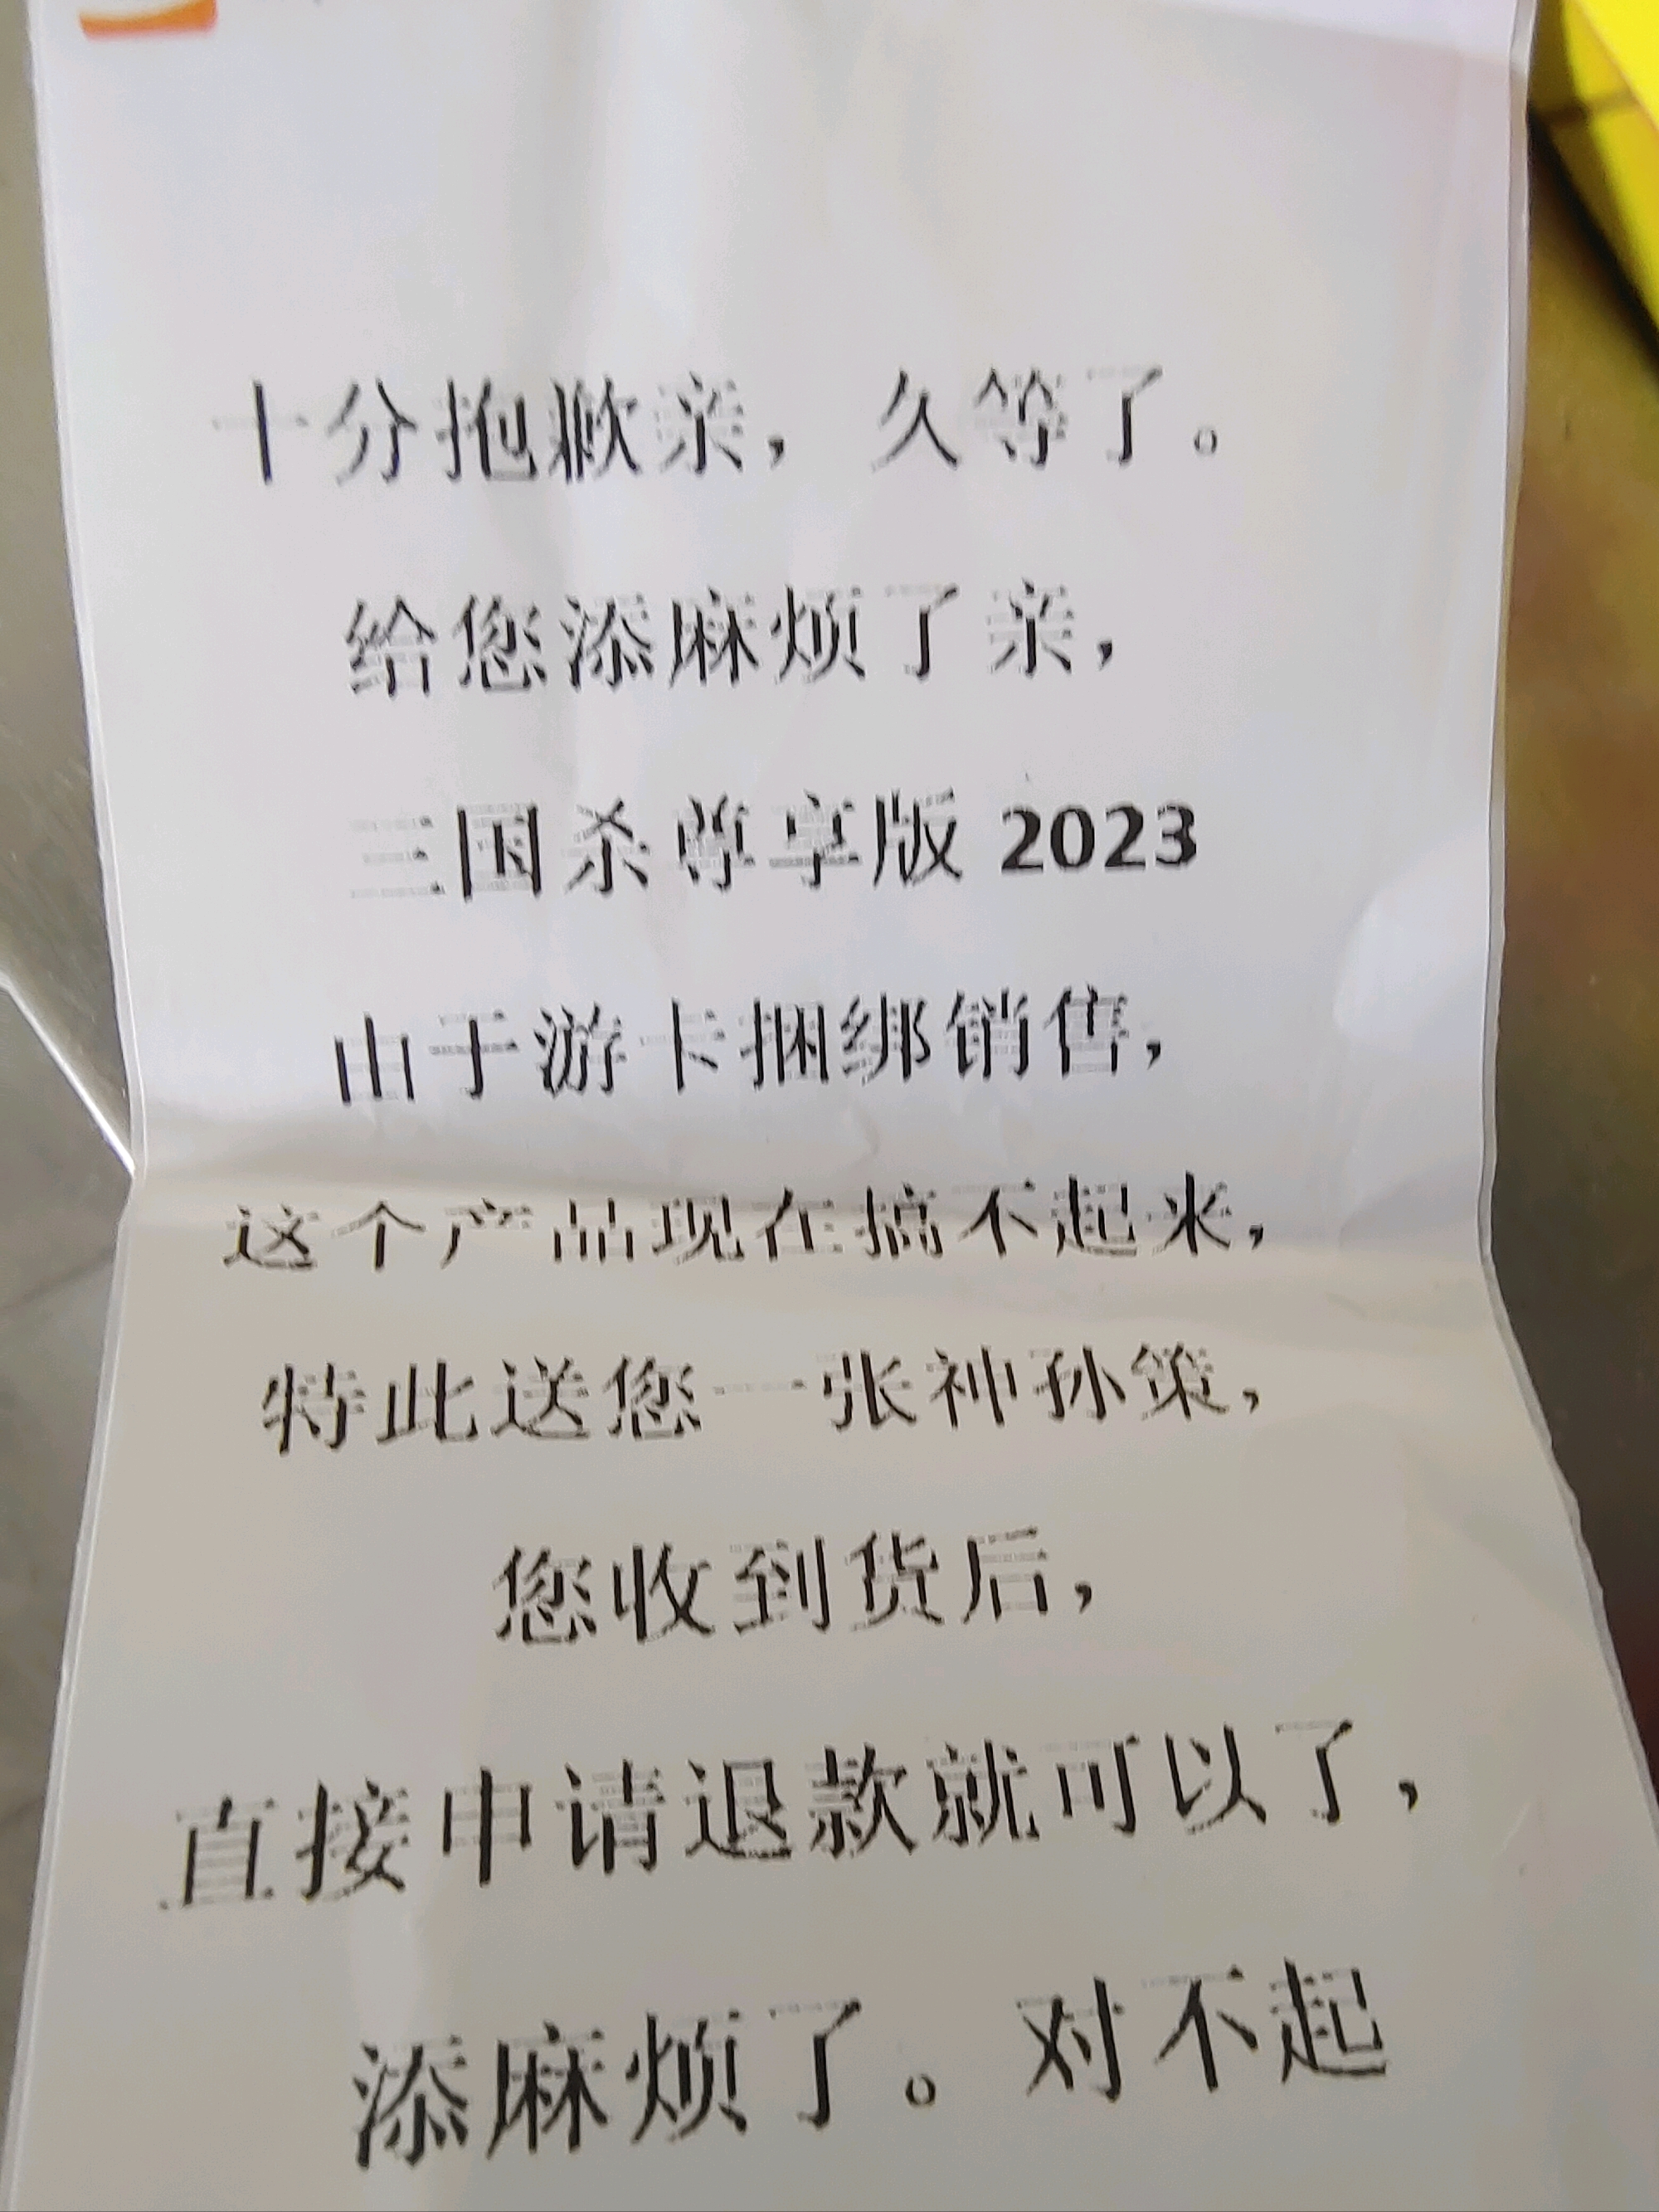 十分抱歉亲，久等了。
给您添麻烦了亲，
三国杀尊享版 2023
由于游卡捆绑销售，
这个产品现在搞不起来，
特此送您一张神孙策，
您收到货后，
直接申请退款就可以了，
添麻烦了。对不起